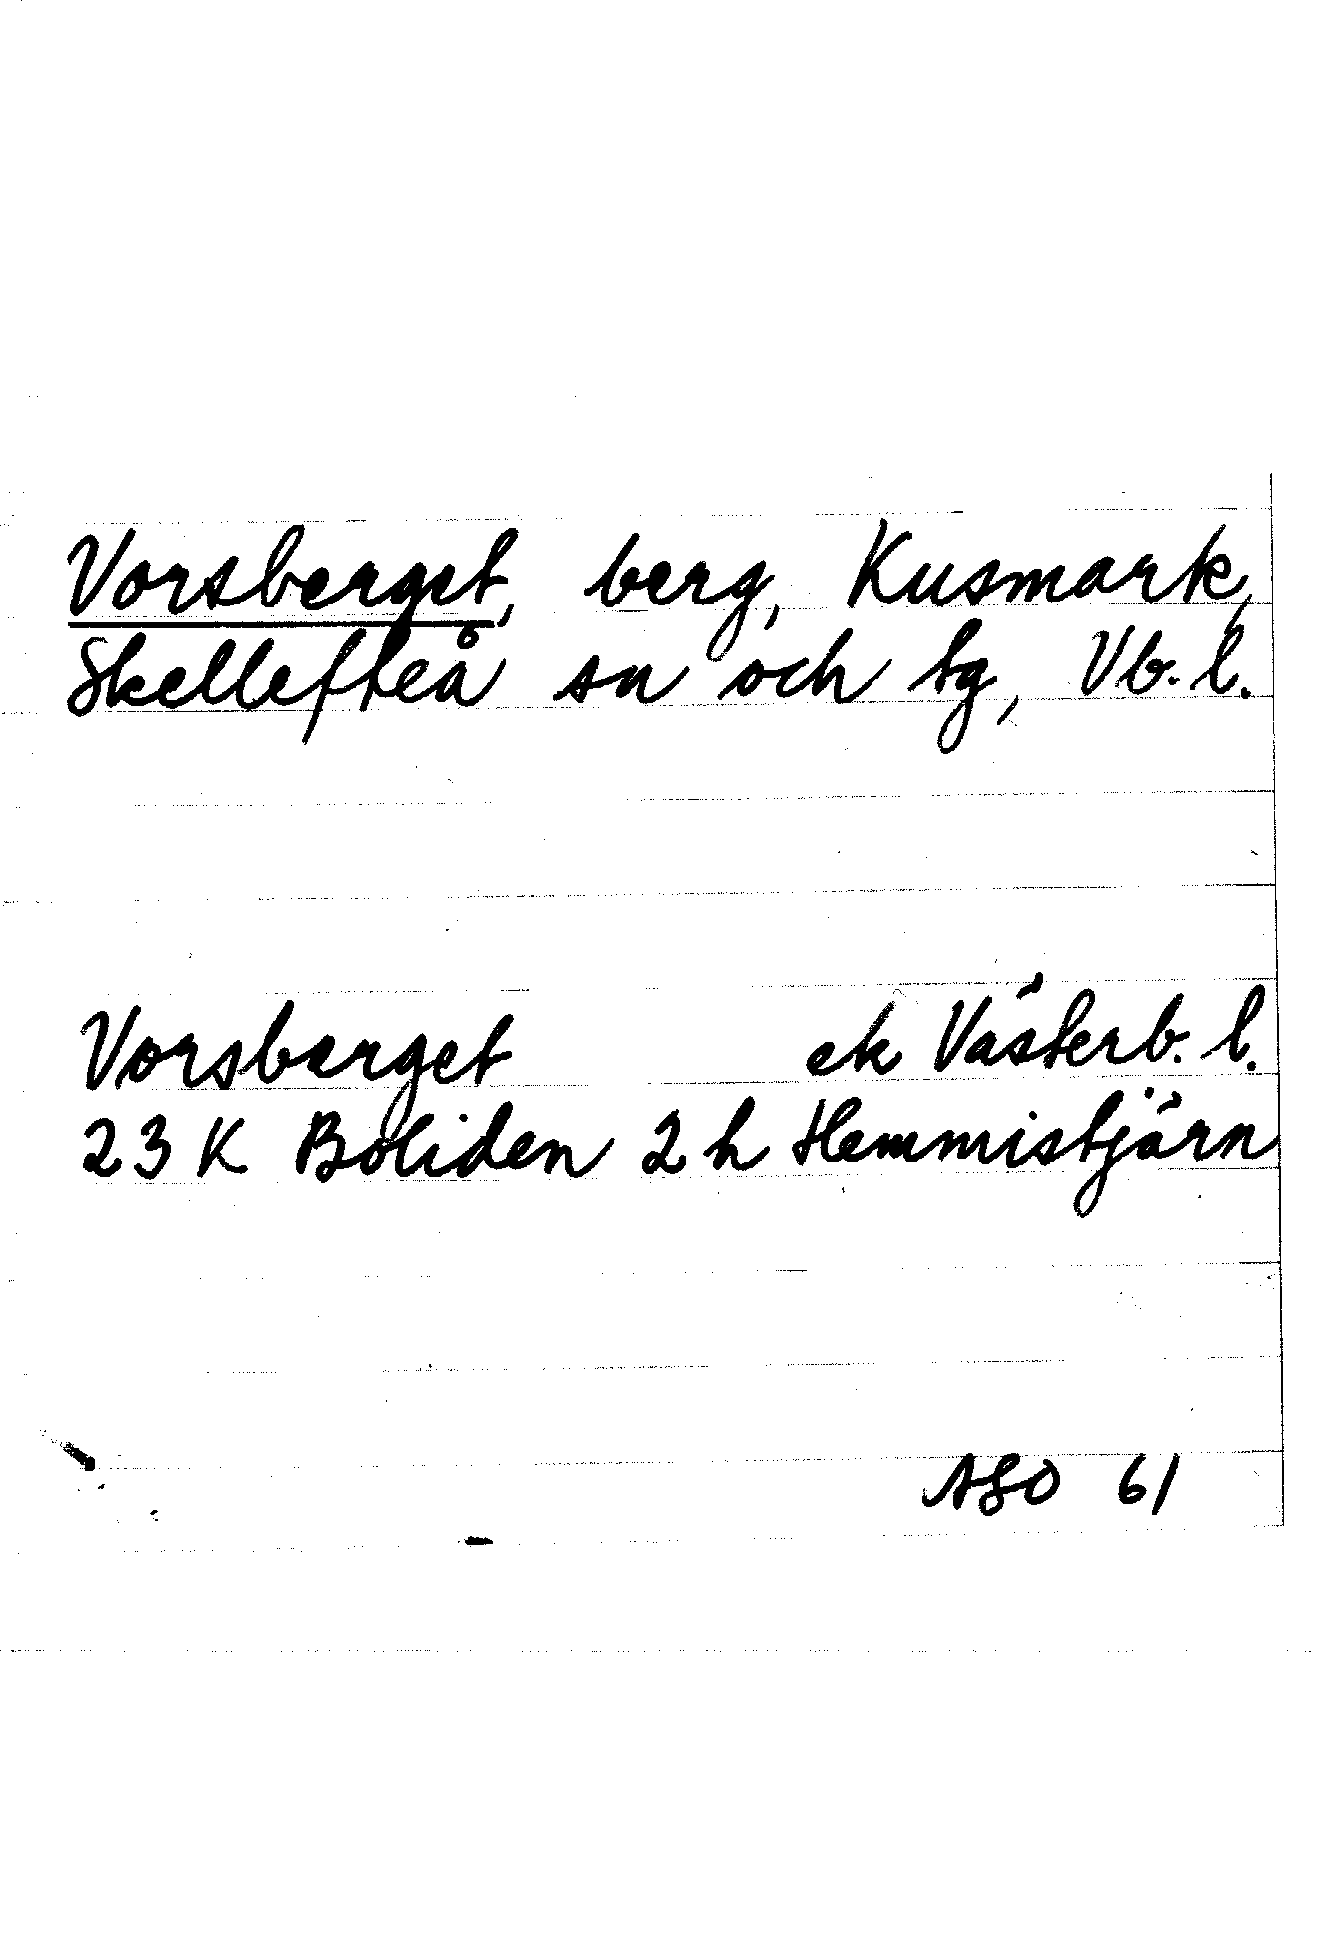 Vorsberget, berg, Kusmark,
Skellefteå sn och tg, Vb. l.
Vorsberget ek Västerb. l.
23 K Boliden 2 h Hemmistjärn
ASO 61